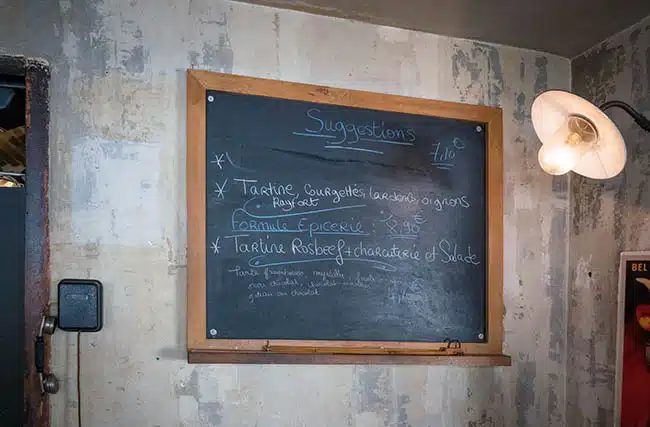 Suggestions
7,10 €
*
* Tartine, Courgettes, lardons, oignons
Rayfort
Formule Epicerie : 8,90 €
* Tartine Rosbeef + charcuterie et Salade
Tarte framboises, myrtille,
chocolat
chocolat
BEL